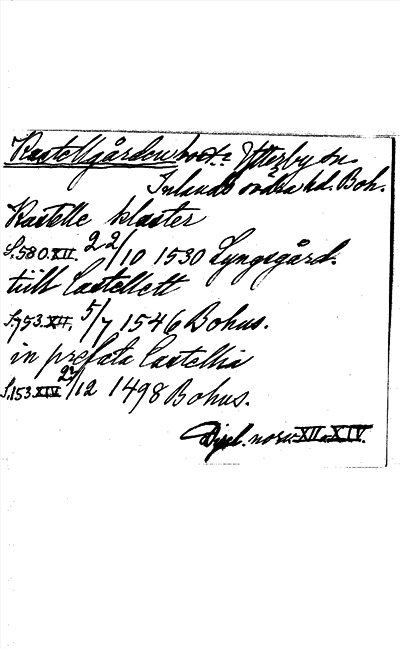 Kastellgården bost. Ytterby sn.
Inlands södra hd. Boh.
Kastelle kloster
S. 580. XII. 22/10 1530 Lyngsgård.
tiill Castellett
S. 753. XII. 5/7 1546 Bohus.
in prefata Castellia
S. 153. XIV 27/12 1498 Bohus.
Dipl. norv. XII o. XIV.